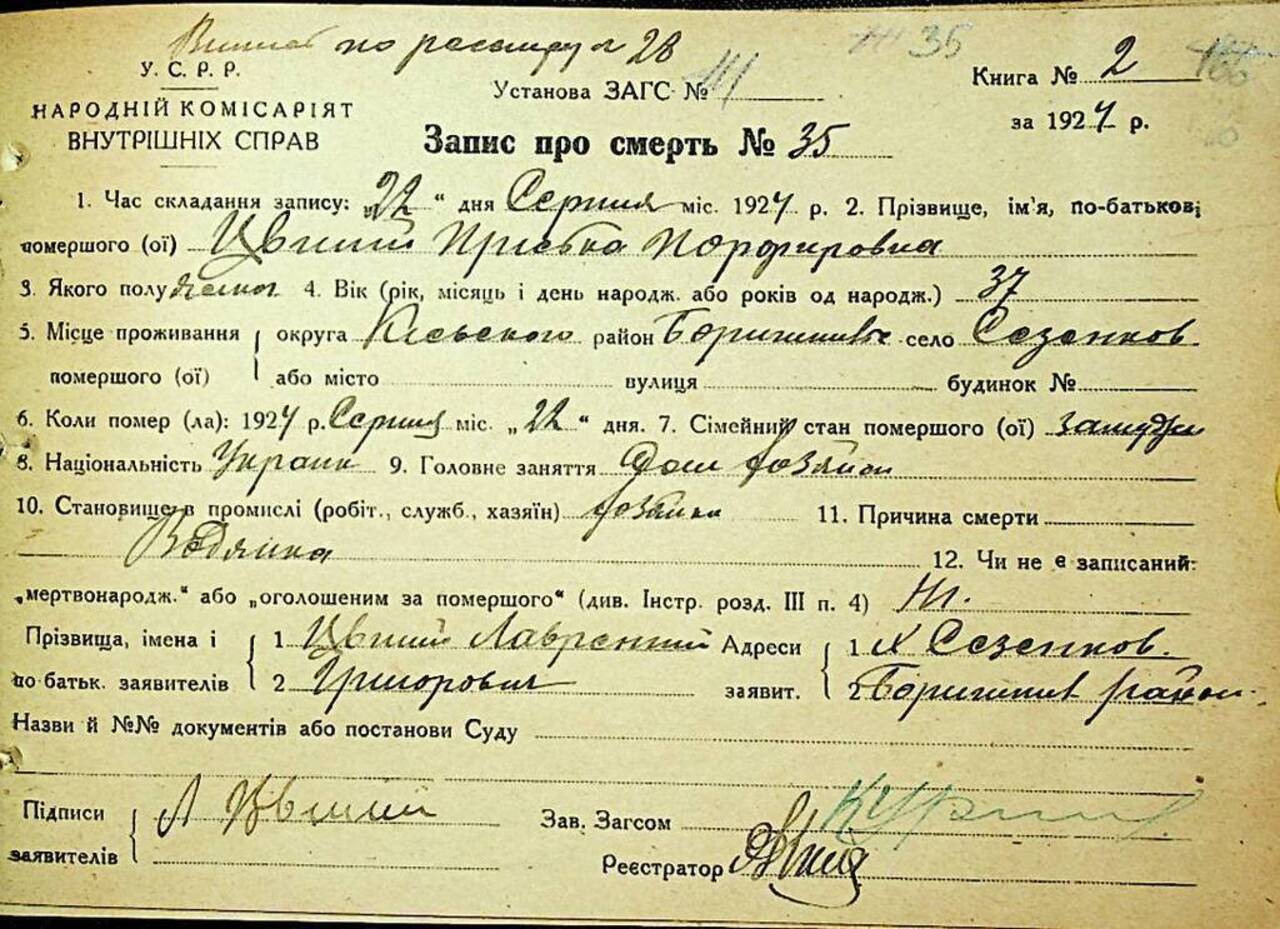 по реєстру № 28
35
У. С. Р. Р.
НАРОДНІЙ КОМІСАРІЯТ
ВНУТРІШНІХ СПРАВ
Установа ЗАГС №
Книга № 2
за 1924 р.
Запис про смерть № 35
1. Час складання запису: „22“ дня Серпня міс. 1924 р. 2. Прізвище, ім'я, по-батькові
помершого (ої) Цвиний Порфировна
3. Якого полу 4. Вік (рік, місяць і день народж. або років од народж.) 37
5. Місце проживання округа Київського район село Сезенков
помершого (ої) або місто вулиця будинок №
6. Коли помер (ла): 1924 р. Серпня міс. „22“ дня. 7. Сімейний стан помершого (ої) замужем
8. Національність Украин 9. Головне заняття Дом хозяйка
10. Становище в промислі (робіт., служб., хазяїн) хозяйка 11. Причина смерти
Водянка 12. Чи не є записаний:
„мертвонародж.“ або „оголошеним за помершого“ (див. Інстр. розд. III п. 4) Ні.
Прізвища, імена і по батьк. заявителів
1 Цвиний Лаврентий
2 Григорович
Адреси заявит.
1 х Сезенков.
2 район
Назви й №№ документів або постанови Суду
Підписи заявителів Л Цвиний
Зав. Загсом
Реєстратор